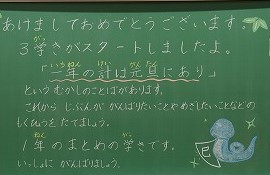 あけましておめでとうございます。
3学きがスタートしましたよ。
「一年の計は元旦にあり」
という むかしのことばがあります。
これから じぶんが がんばりたいことや めざしたいことなどの
もくひょうを たてましょう。
1年のまとめの学きです。
いっしょに がんばりましょう。
巳